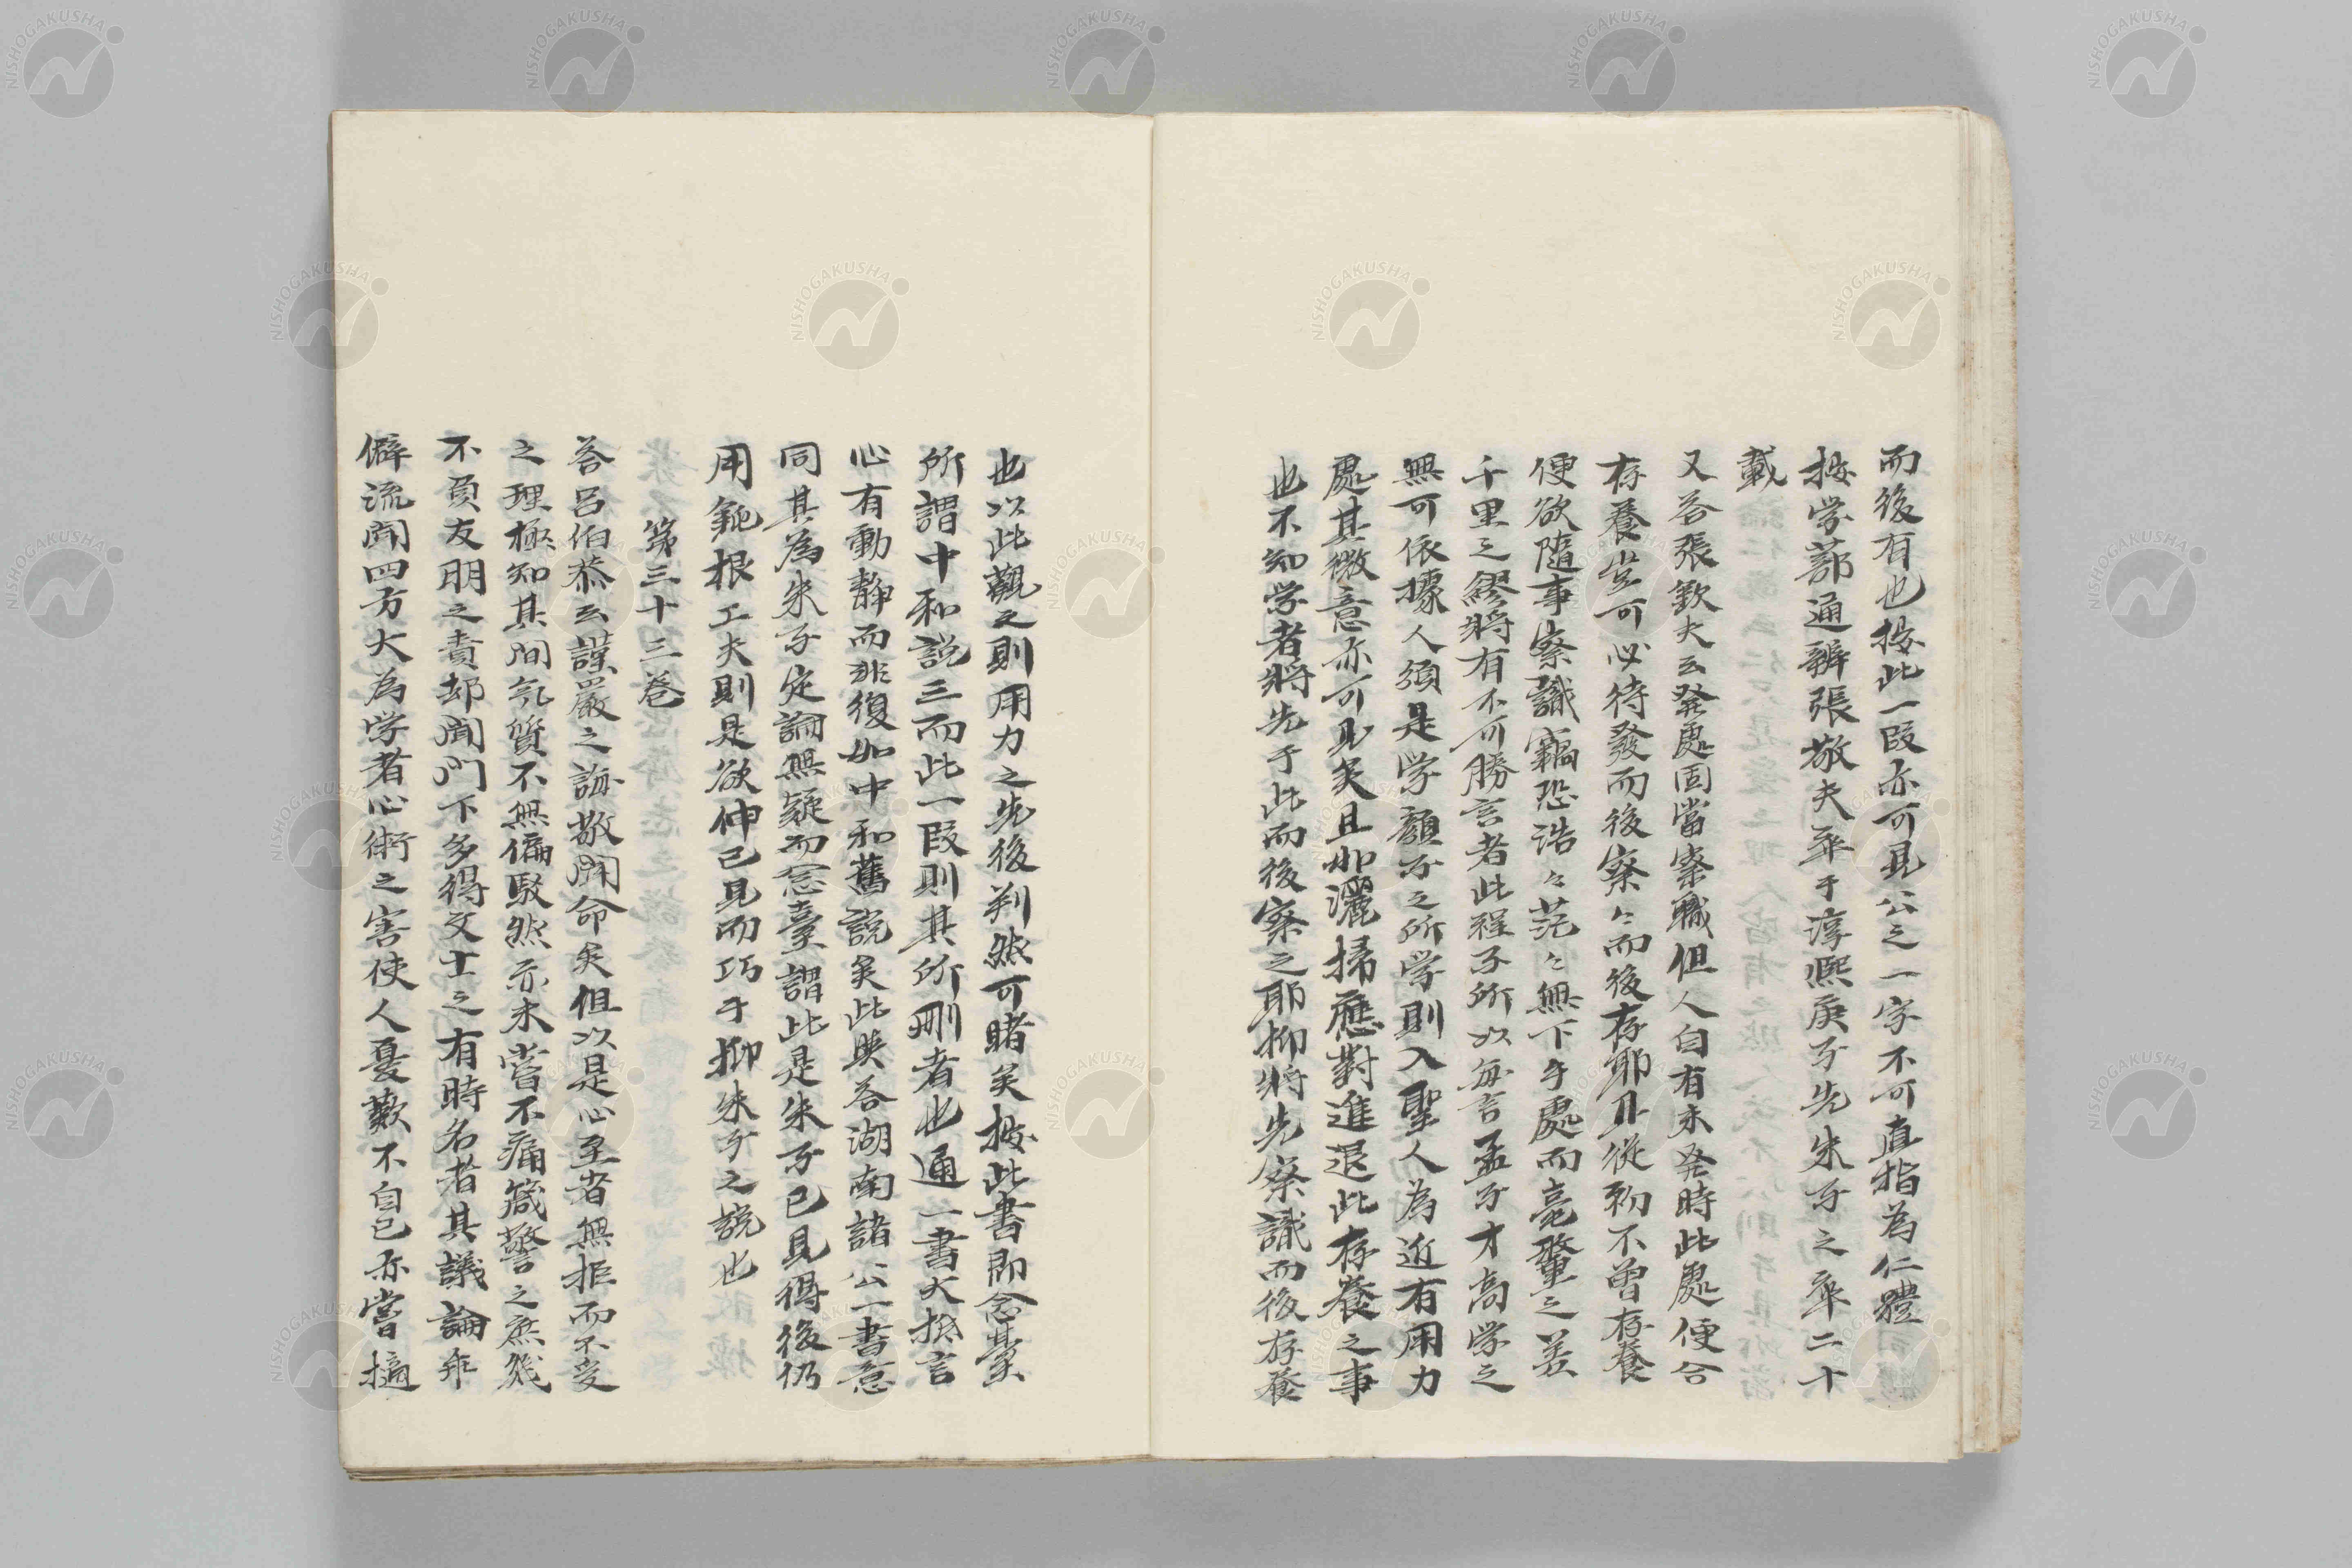 而後有也按此一段亦可見公之一字不可直指為仁體
按学蔀通辨張敬夫卒于淳熙庚子先朱子之卒二十
載
又答張欽夫云発處固當察職但人自有未発時此處便合
存養豈可必待發而後察々而後存耶且從初不曾存養
便欲隨事察識竊恐浩々茫々無下手處而毫釐之差
千里之繆將有不可勝言者此程子所以每言孟子才高学之
無可依據人須是学顏子之所学則入聖人為近有用力
處其微意亦可見矣且如灑掃應對進退此存養之事
也不知学者將先于此而後察之耶抑將先察識而後存養
也以此觀之則用力之先後判然可睹矣按此書即念臺
所謂中和說三而此一段則其所刪者也通一書大抵言
心有動靜而非復如中和舊說矣此與答湖南諸公一書意
同其為朱子定論無疑而念臺謂此是朱子已見得後仍
用鈍根工夫則是欲伸己見而巧于抑朱子之說也
第三十三卷
答呂伯恭云謹嚴之誨敬聞命矣但以是心至者無拒而不受
之理極知其間気質不無偏駁然亦未嘗不痛箴警之庶幾
不負友朋之責却聞門下多得文士之有時名者其議論乖
僻流聞四方大為学者心術之害使人憂歎不自已亦嘗摘
NISHOGAKUSHA